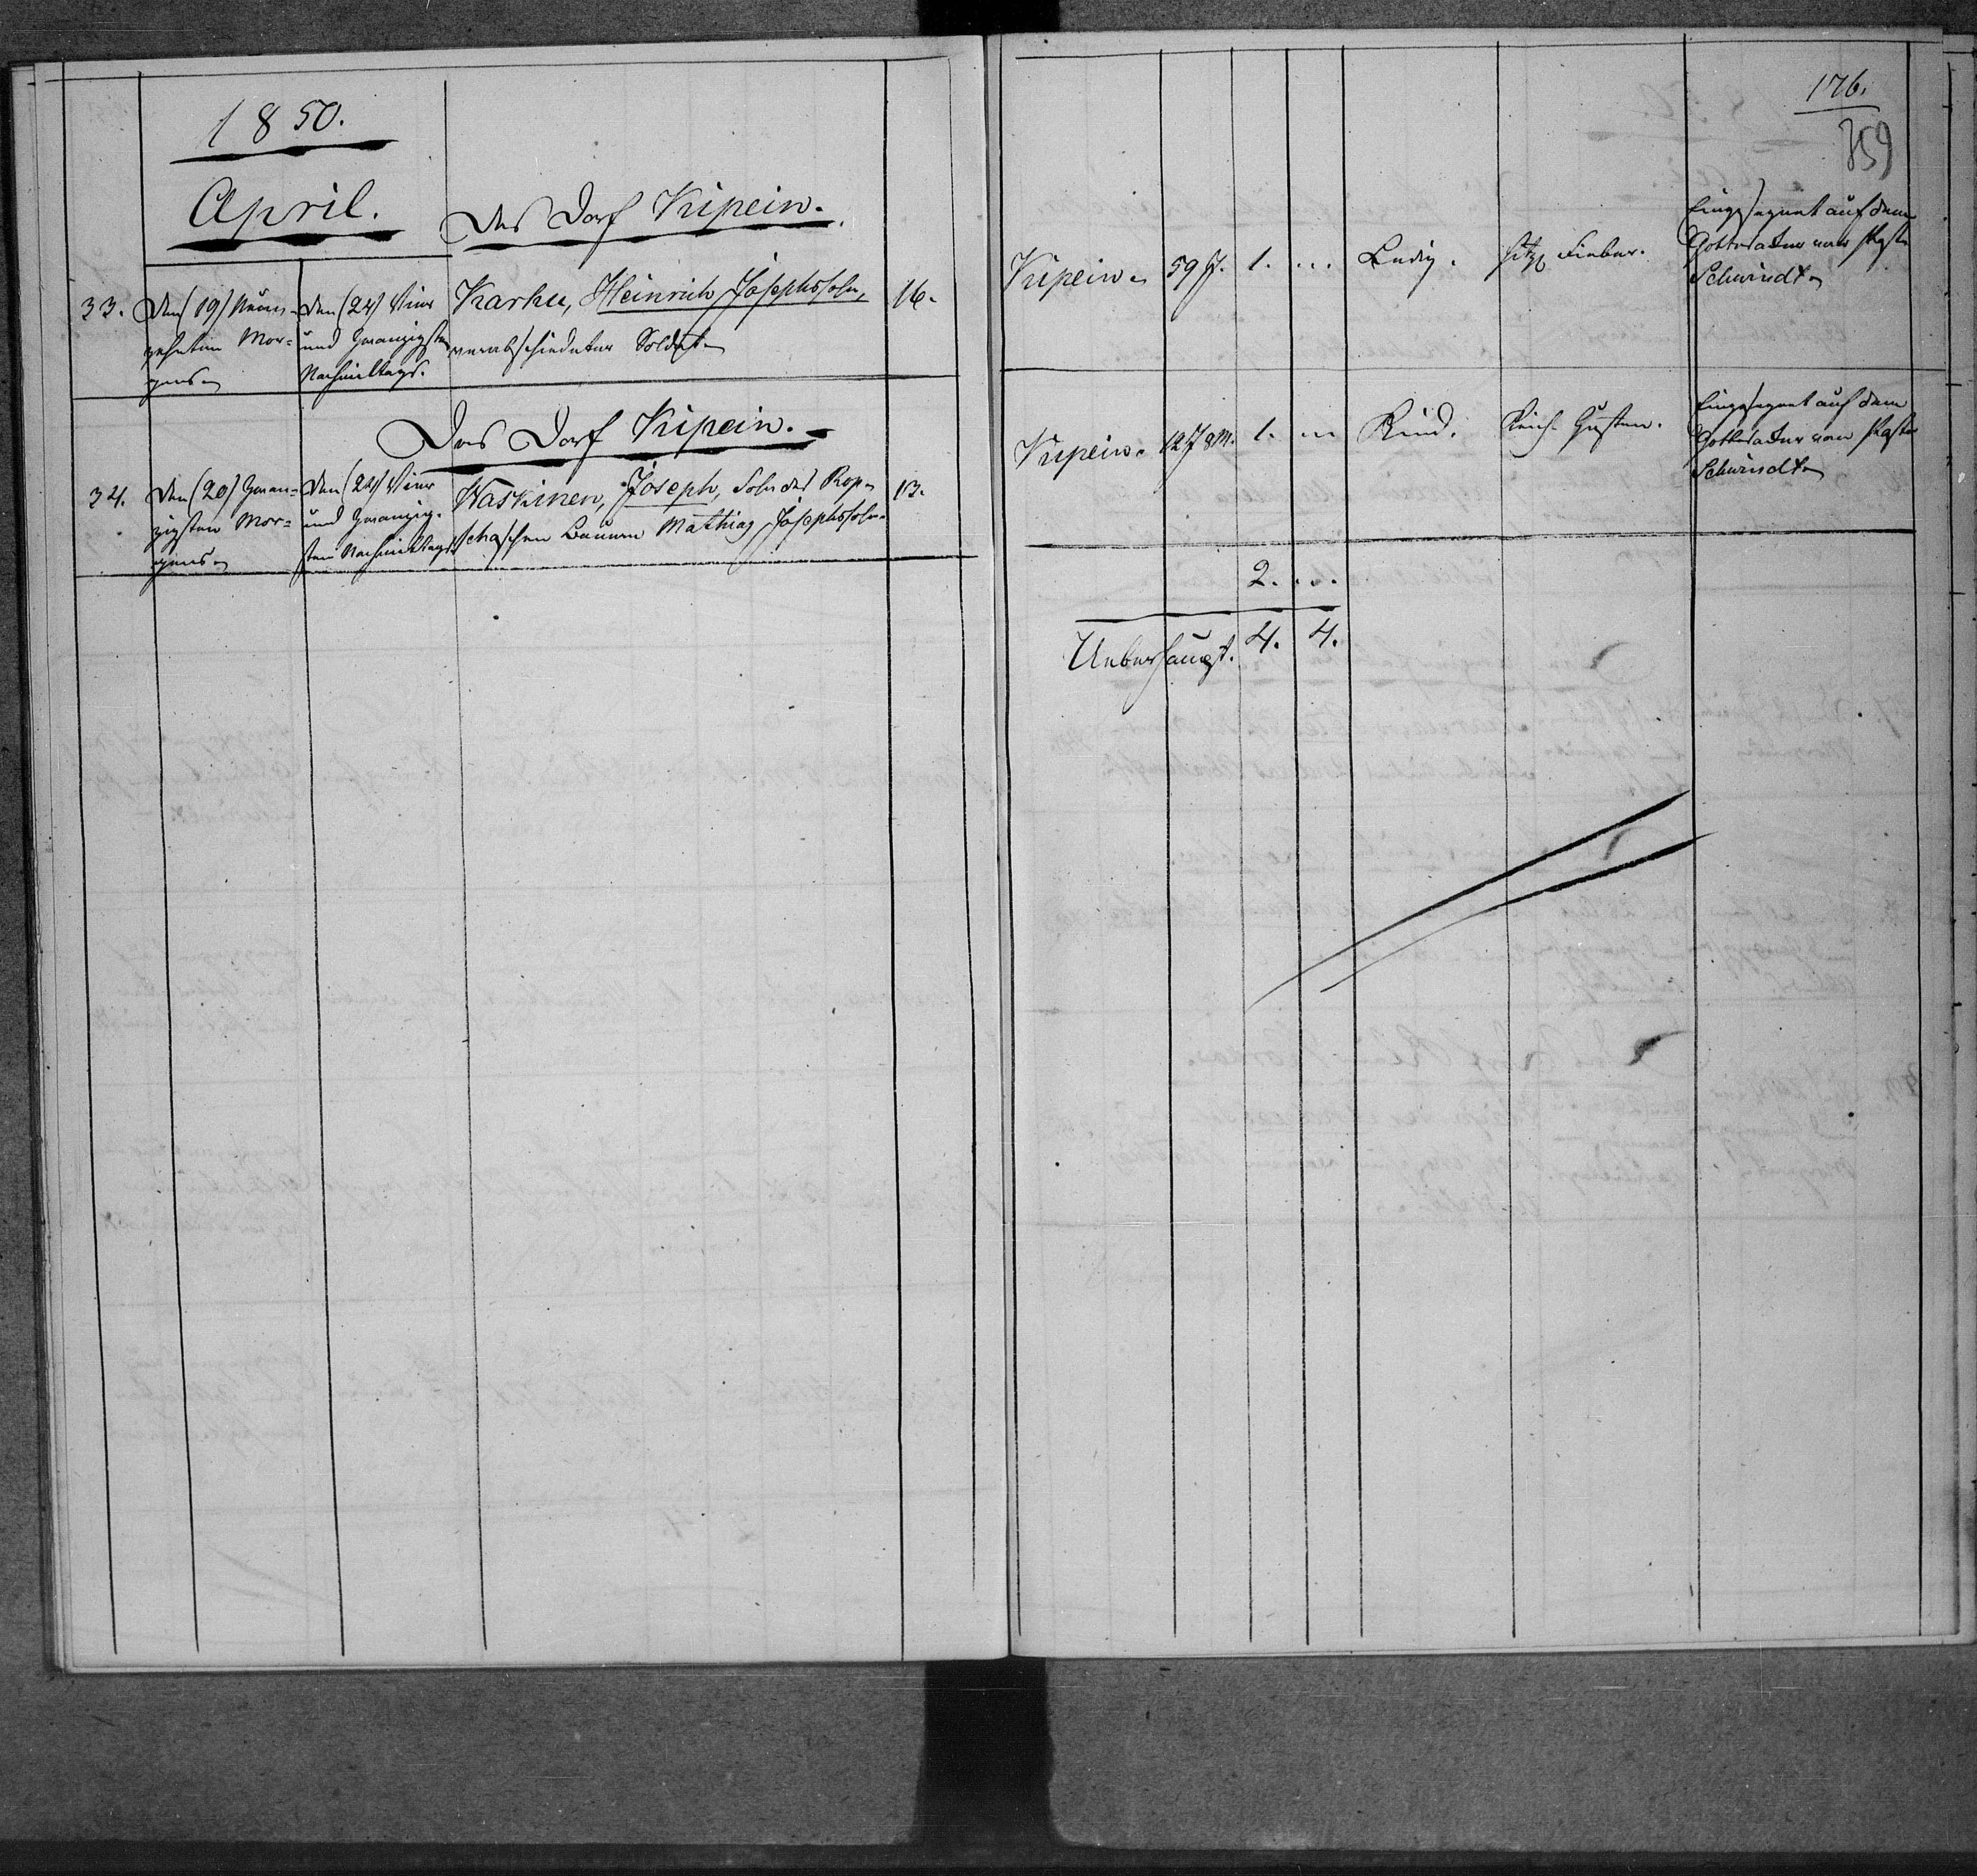 1850.
April.
Das Dorf Kipein.
33. Den (19) Neun-
zehnten Mor-
gens
Den (24) Vier
und Zwanzigsten
Nachmittags.
Karhu, Heinrich Josephssohn,
verabschiedeter Soldat
16.
Das Dorf Kipein.
34. Den (20) Zwan-
zigsten Mor-
gens
Den (24) Vier
und Zwanzig-
sten Nachmittags
Waskinen, Joseph, Sohn des Rop-
schaschen Bauern Mathias Josephssohn
13.
176.
359
Kipein 59 J. 1. ... Ledig. hitz. Fieber.
Eingesegnet auf dem
Gottesacker von Past.
Schwindt
Kipein 12 J 8 M. 1. ... Kind. Keich Husten.
Eingesegnet auf dem
Gottesacker von Past.
Schwindt
2. ...
Ueberhaupt. 4. 4.